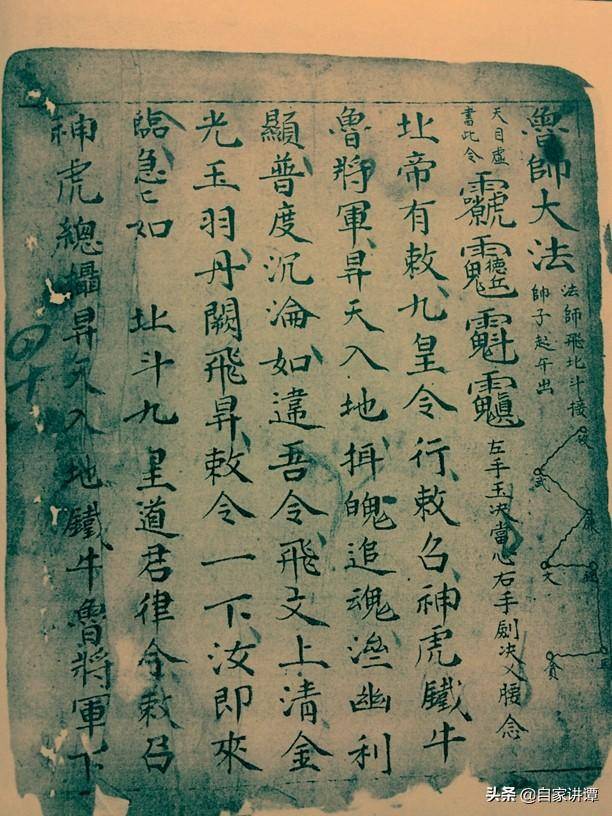 魯師大法
法師飛北斗接
帥子起午出
破
武
廉
文
祿
巨
貪
天目虛
書此令
德丘
左手玉决當心右手劍决乂腰念
北帝有敕九皇令行敕召神虎鐵牛
魯將軍昇天入地挕魄追魂澄幽利
顯普度沉淪如違吾令飛文上清金
光玉羽丹闕飛昇敕令一下汝即來
臨急〻如 北斗九皇道君律令敕召
神虎總攝昇天入地鐵牛魯將軍下
四十
头条 @自家讲谭